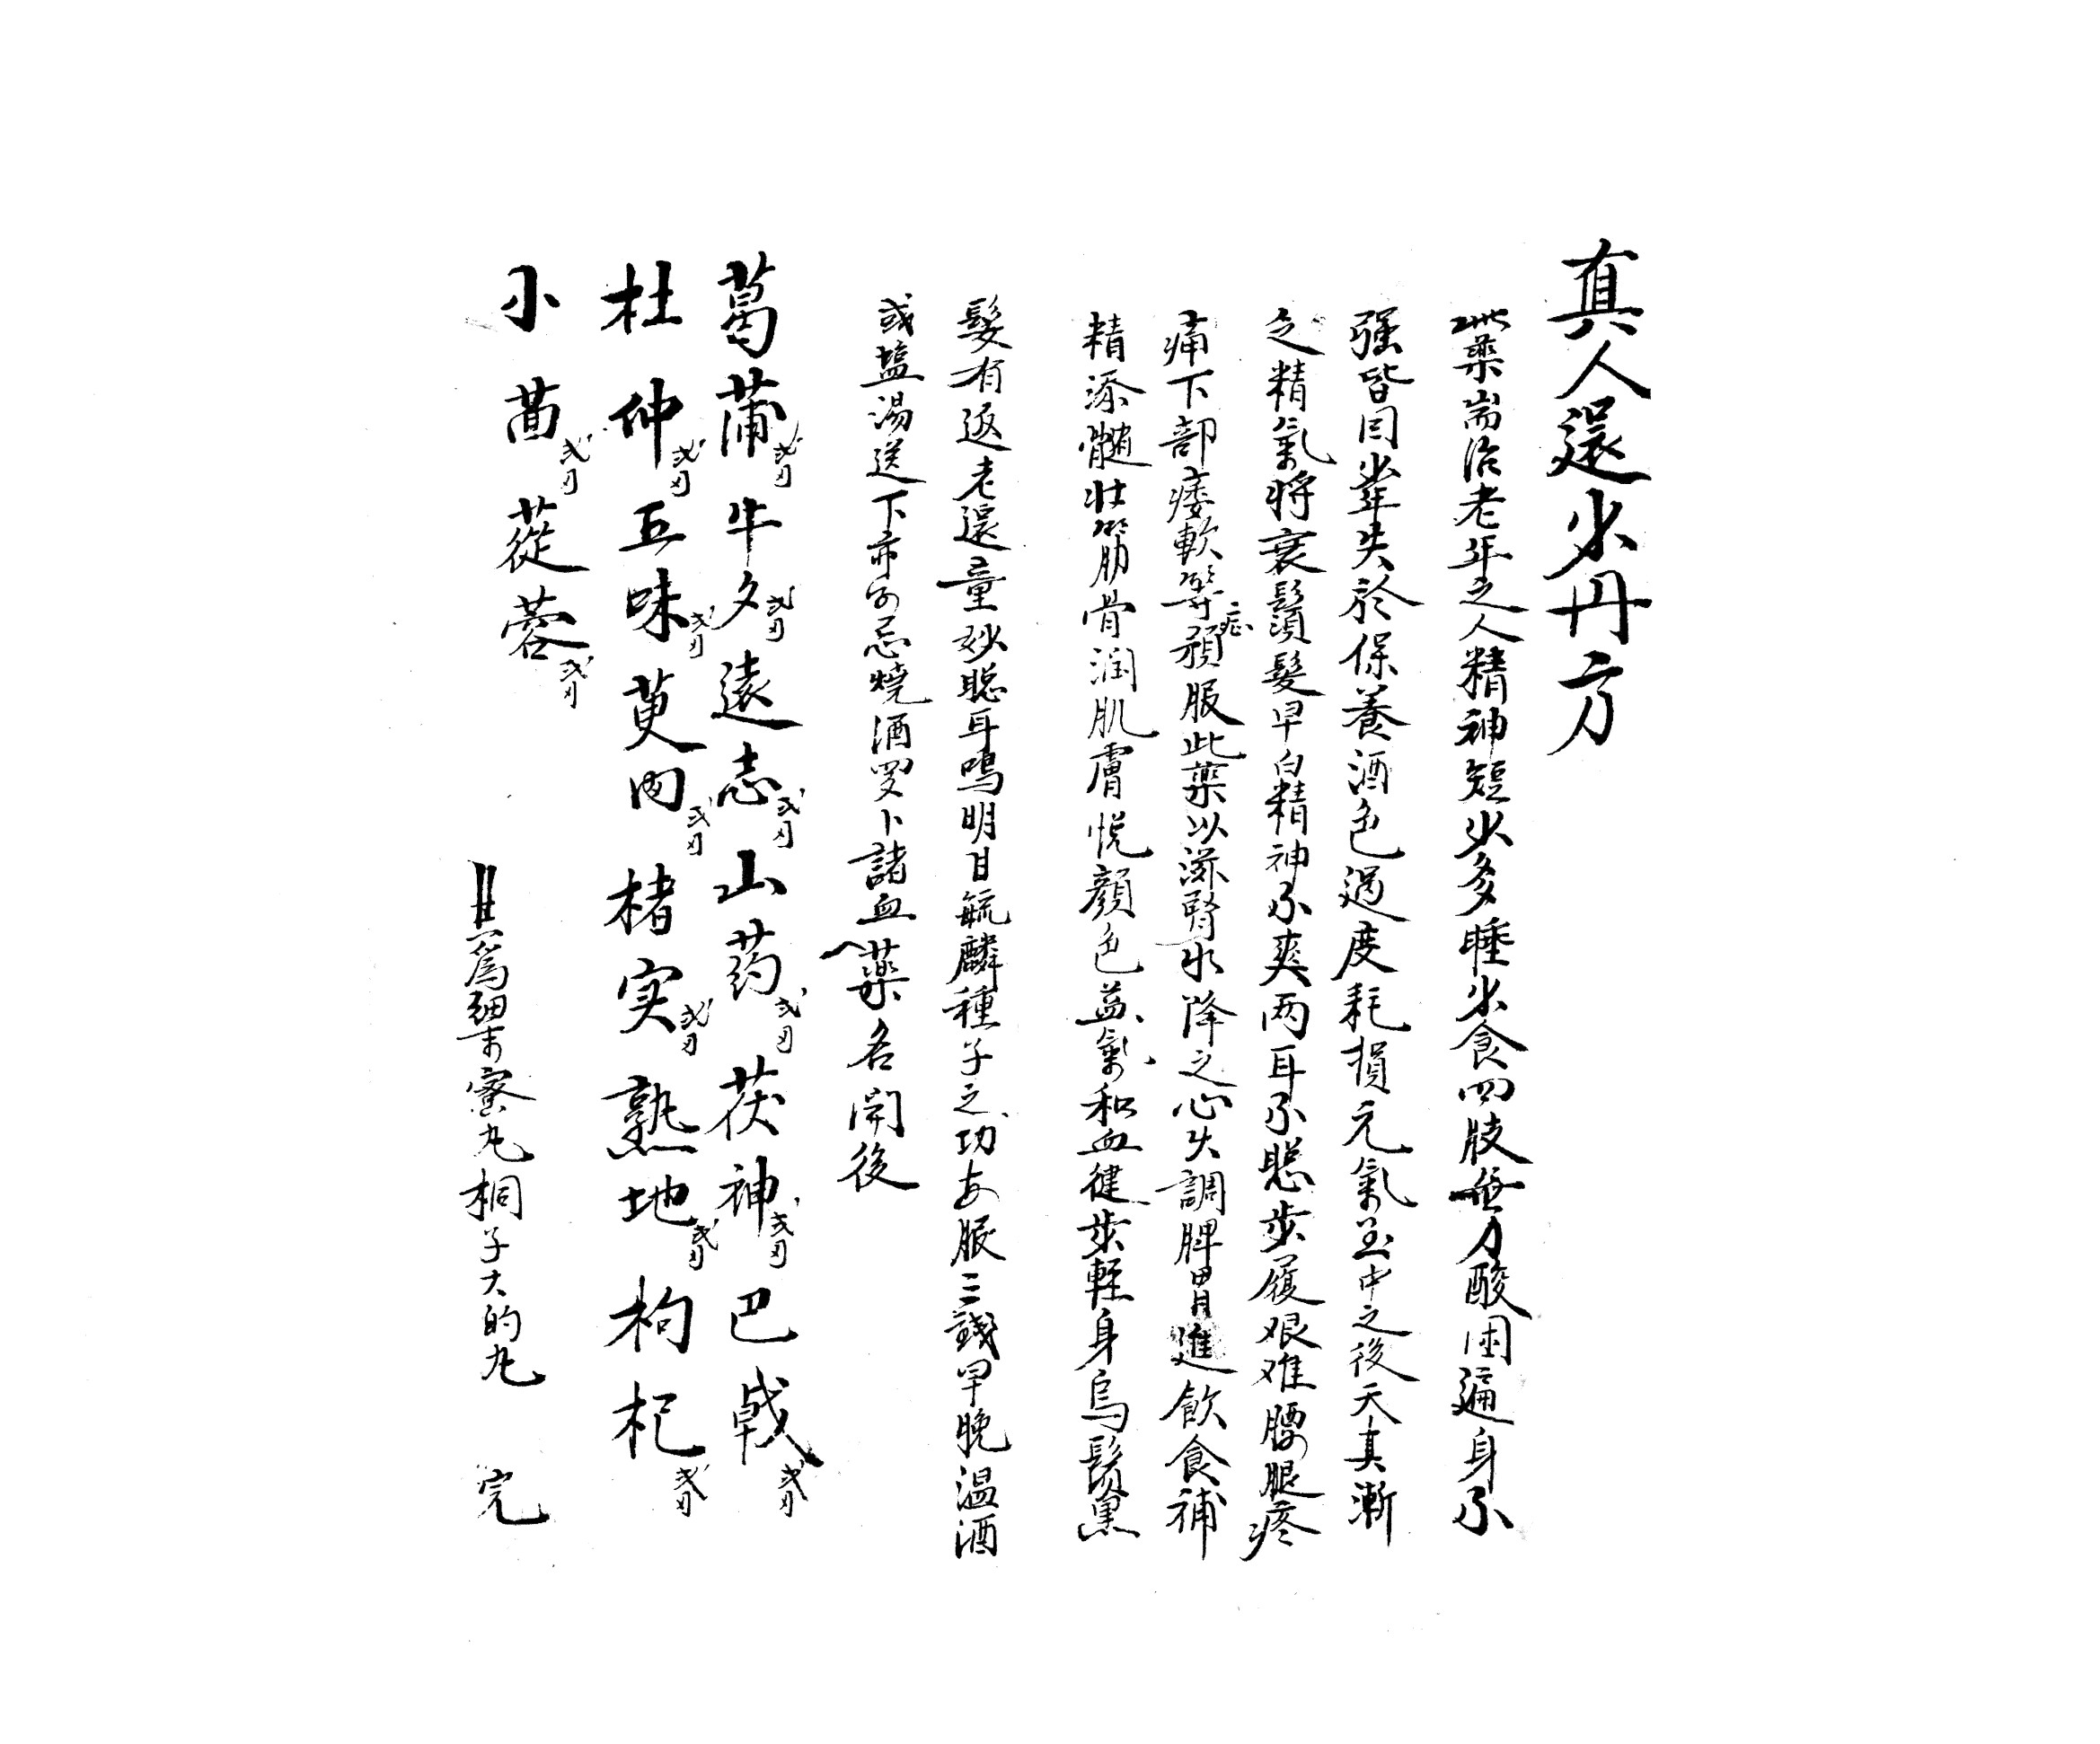 真人還少丹方
此藥耑治老年之人精神短少多睡少食四肢無力酸困遍身不
强皆因少年失於保養酒色過度耗損元氣至中之後天真漸
之精氣将衰鬚髮早白精神不爽两耳不聰步履艰难腰腿疼
痛下部痿軟等症預服此藥以滋腎水降之心火調脾胃進飲食補
精添髓壮筋骨润肌膚悦顏色益氣和血健步輕身烏鬚黑
髮有返老還童妙聪耳鳴明目毓麟種子之功每服三錢早晚温酒
或塩湯送下亦可忌燒酒罗卜諸血藥名開後
葛蒲弍刄牛夕弍刄遠志弍刄山药弍刄茯神弍刄巴戟弍刄
杜仲弍刄五味弍刄萸肉弍刄楮实弍刄熟地弍刄枸杞弍刄
小茴弍刄蓯蓉弍刄
共為細末蜜丸桐子大的丸 完